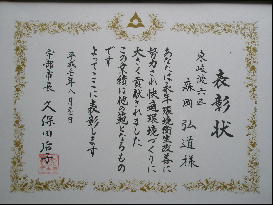 表彰状
東岐波六区
森岡弘道様
あなたは永年環境衛生改善に
努力され快適環境づくりに
大きく貢献されました
この功績は他の範となるもの
です
よってここに表彰します
平成 年八月 日
宇部市長 久保田